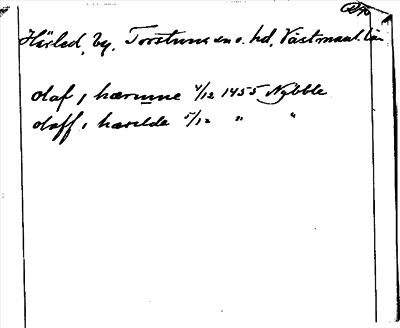 Härled, by, Torstuna sn o. hd, Västmanl. län
olaf i hærunne 4/12 1455 Nybble
olaff i hærilde 5/12 " "